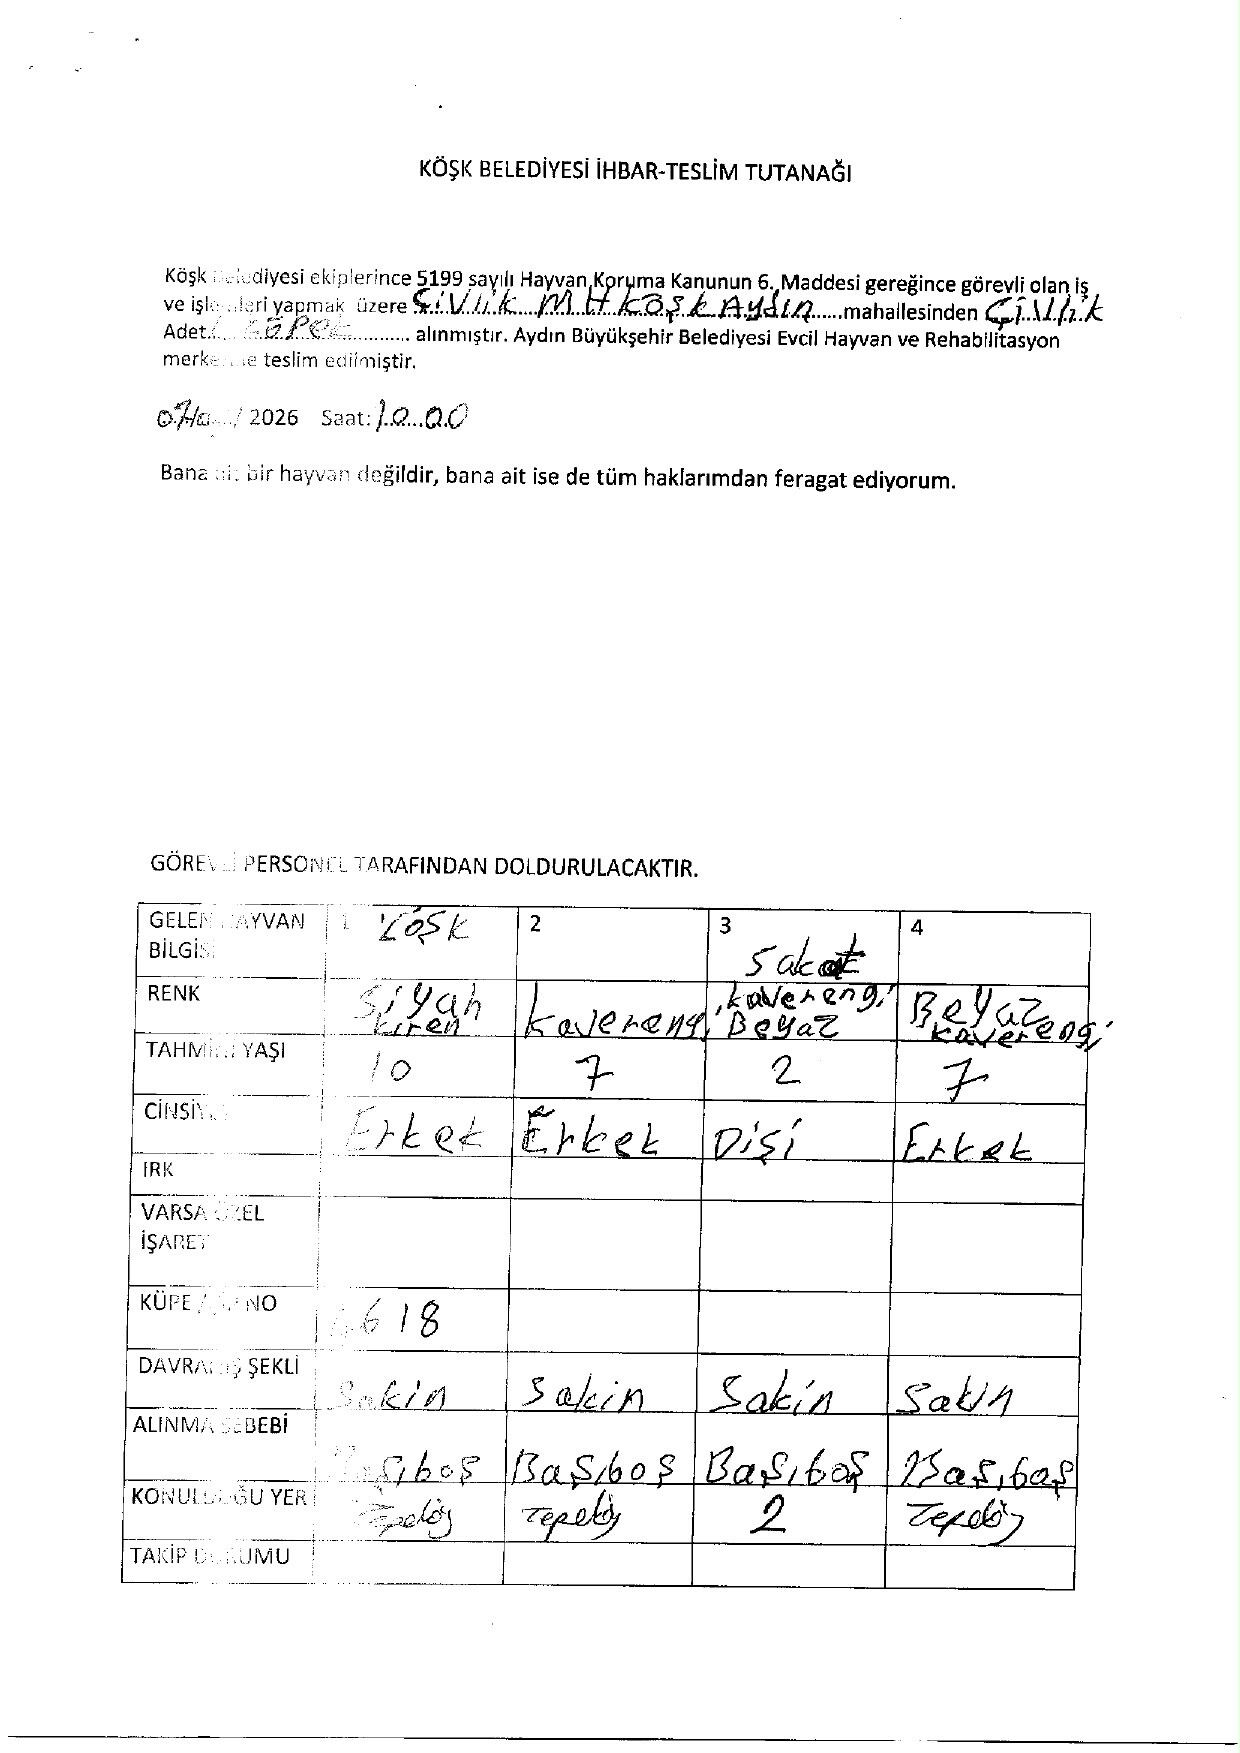 KÖŞK BELEDİYESİ İHBAR-TESLİM TUTANAĞI
Köşk Belediyesi ekiplerince 5199 sayılı Hayvan Koruma Kanunun 6. Maddesi gereğince görevli olan iş
ve işlemleri yapmak üzere Çivlik MH Köşk Aydın mahallesinden Çivlik
Adet köpek alınmıştır. Aydın Büyükşehir Belediyesi Evcil Hayvan ve Rehabilitasyon
merkezine teslim edilmiştir.
07/ / 2026 Saat: 10.00
Bana ait bir hayvan değildir, bana ait ise de tüm haklarımdan feragat ediyorum.
GÖREVLİ PERSONEL TARAFINDAN DOLDURULACAKTIR.
GELEN HAYVAN 1 Köşk 2 3 4
BİLGİSİ Sakat
RENK Siyah kaverengi kaverengi Beyaz Beyaz kaverengi
TAHMİNİ YAŞI 10 7 2 7
CİNSİYET Erkek Erkek Dişi Erkek
IRK
VARSA ÖZEL
İŞARET
KÜPE / NO 618
DAVRANIŞ ŞEKLİ Sakin Sakin Sakin Sakin
ALINMA SEBEBİ Başıboş Başıboş Başıboş Başıboş
KONULDUĞU YER Tepeköy Tepeköy 2 Tepeköy
TAKİP DURUMU